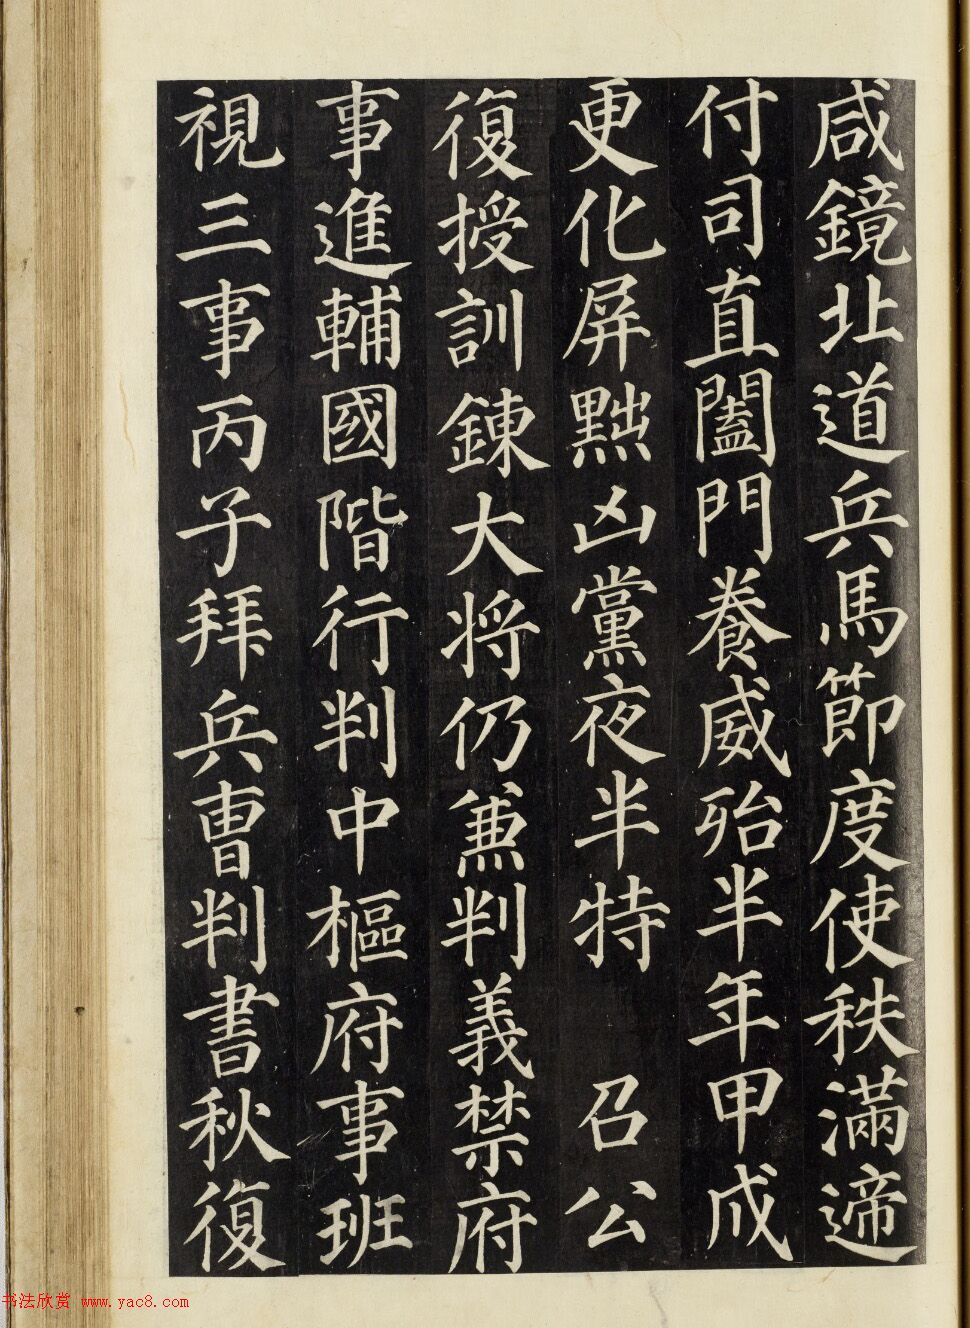 咸鏡北道兵馬節度使秩滿遞
付司直闔門養威殆半年甲戌
更化屏黜凶黨夜半特 召公
復授訓鍊大將仍兼判義禁府
事進輔國階行判中樞府事班
視三事丙子拜兵曹判書秋復
书法欣赏 www.yac8.com